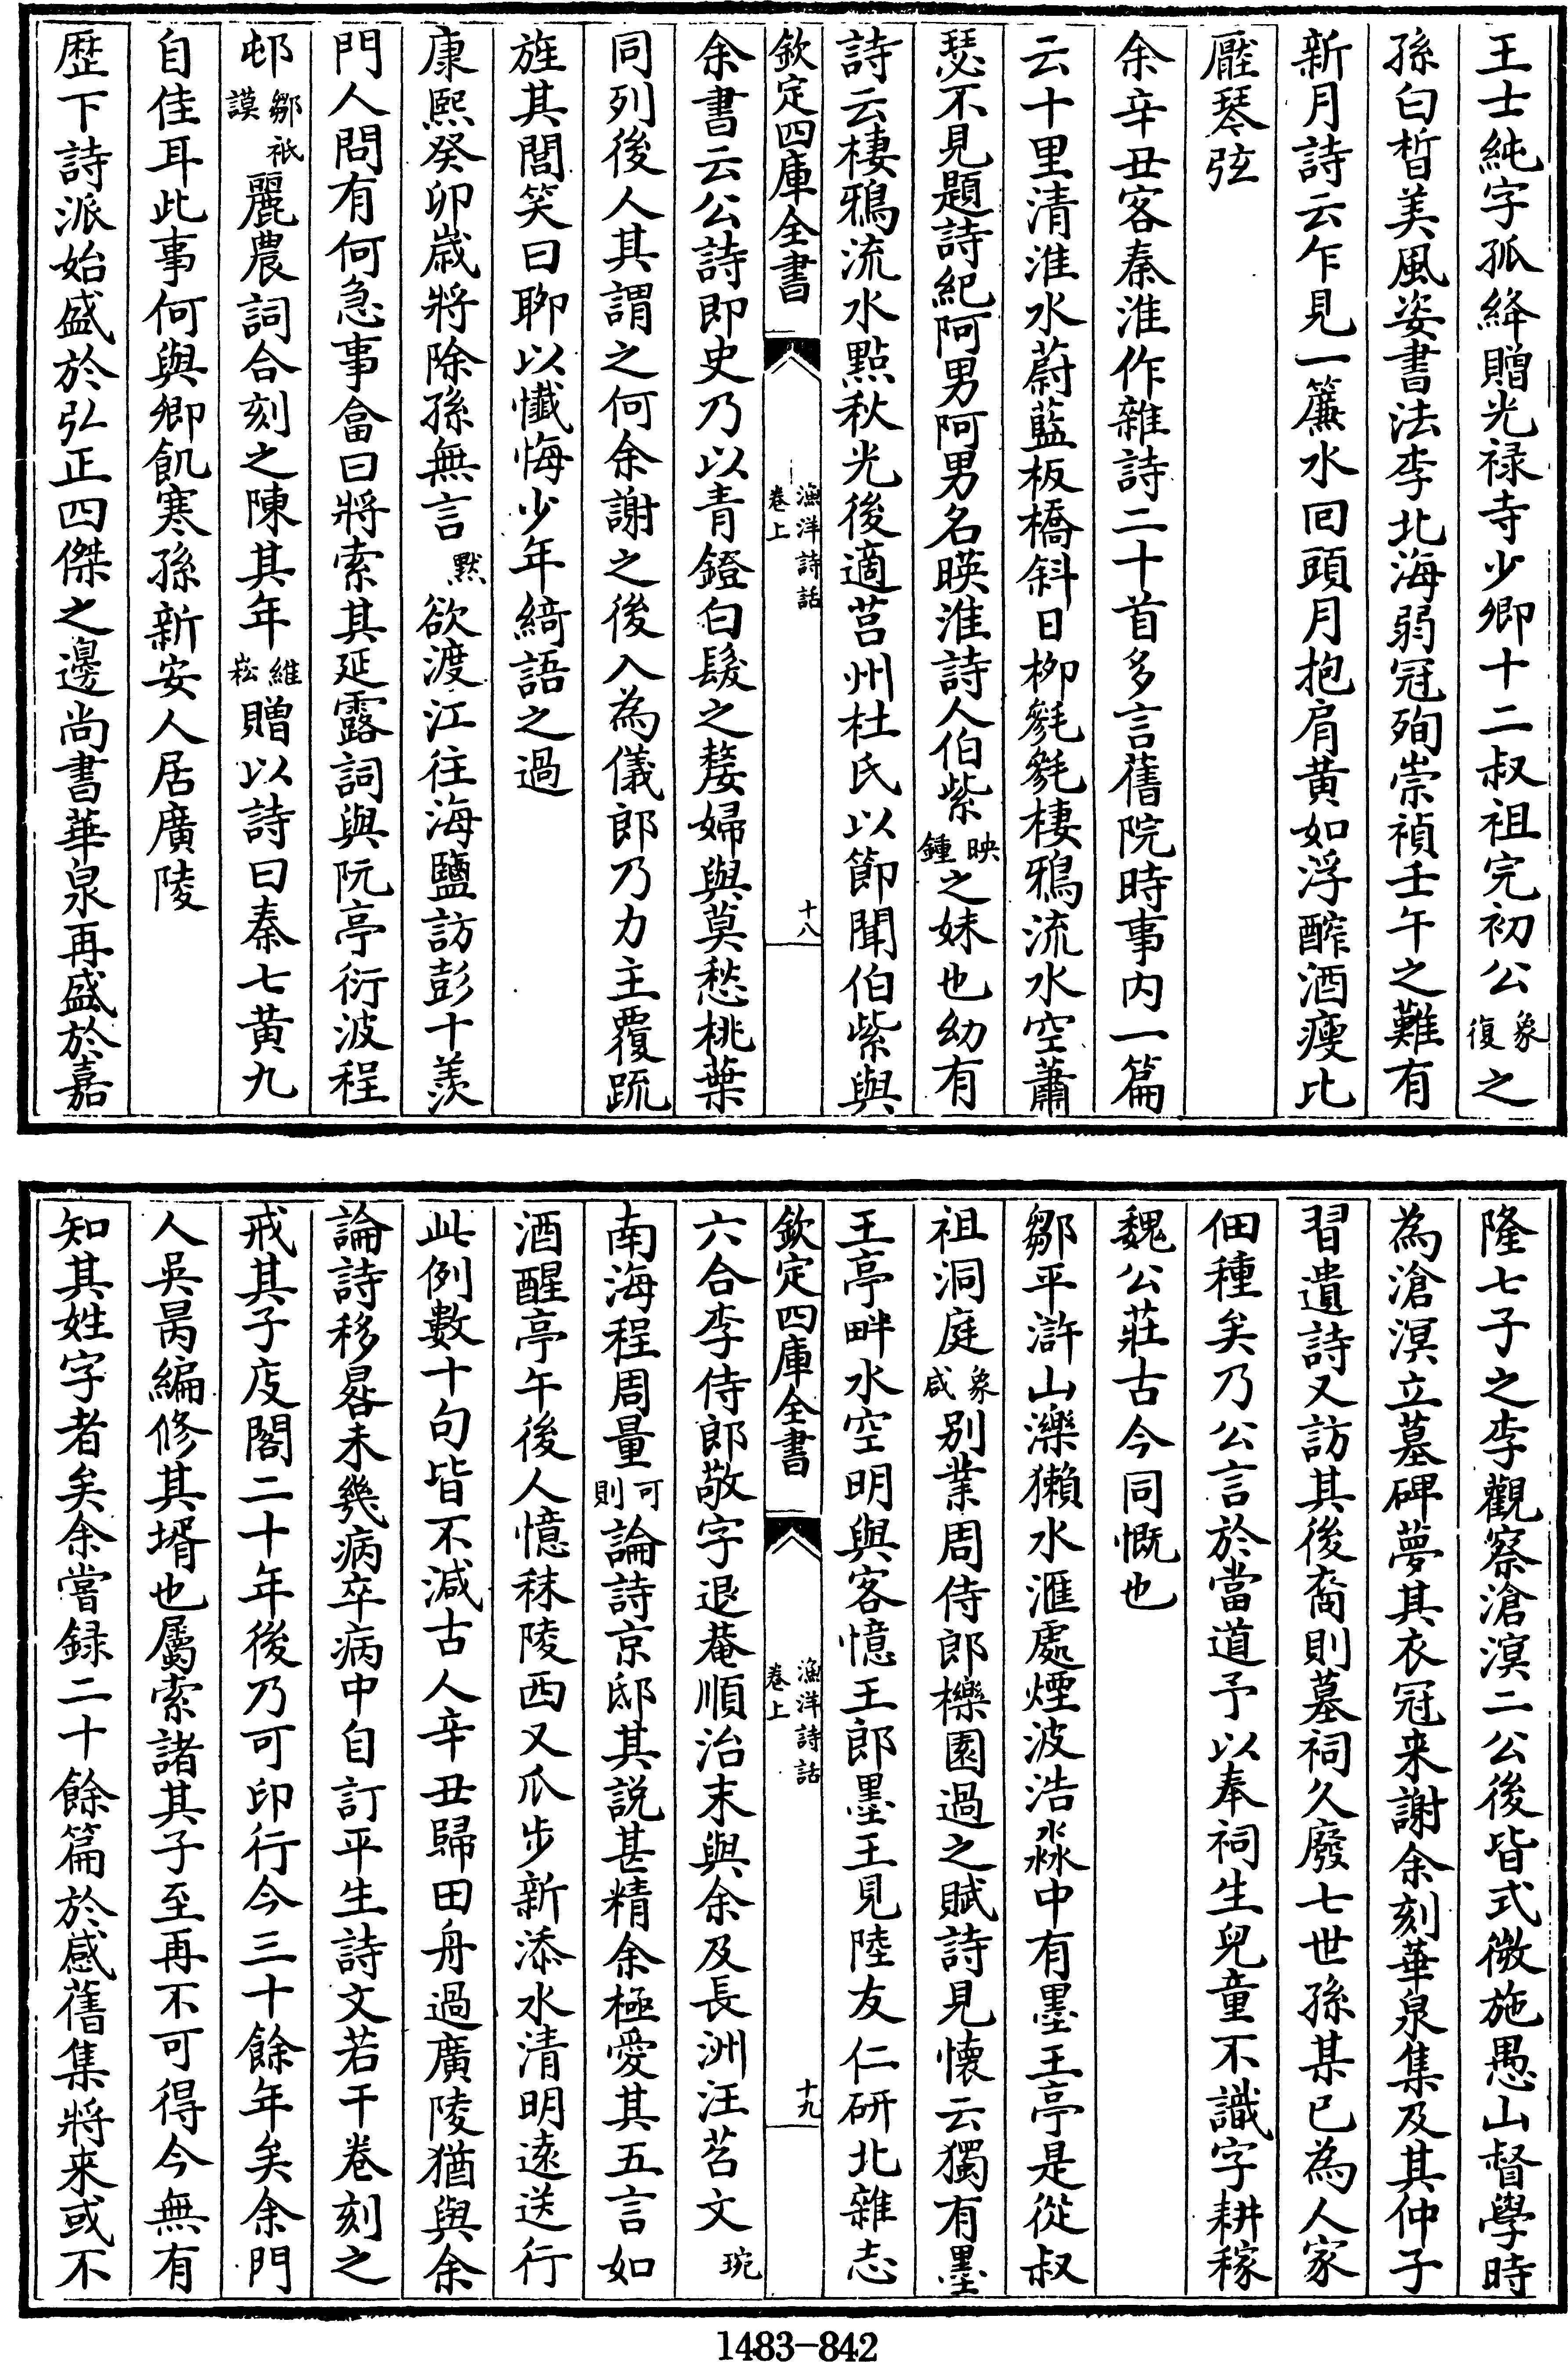 王士純字孤絳贈光禄寺少卿十二叔祖完初公象復之
孫白晳美風姿書法李北海弱冠殉崇禎壬午之難有
新月詩云乍見一簾水回頭月抱肩黄如浮醡酒瘦比
壓琴弦
余辛丑客秦淮作雜詩二十首多言舊院時事内一篇
云十里清淮水蔚藍板橋斜日栁毿毿棲鴉流水空蕭
瑟不見題詩紀阿男阿男名暎淮詩人伯紫映鍾之妹也幼有
詩云棲鴉流水點秋光後適莒州杜氏以節聞伯紫與
欽定四庫全書
漁洋詩話
卷上
十八
余書云公詩即史乃以青鐙白髪之嫠婦與莫愁桃葉
同列後人其謂之何余謝之後入為儀郎乃力主覆疏
旌其閭笑曰聊以懺悔少年綺語之過
康熙癸卯歳將除孫無言黙欲渡江往海鹽訪彭十羨
門人問有何急事畣曰將索其延露詞與阮亭衍波程
邨鄒祗謨麗農詞合刻之陳其年維崧贈以詩曰秦七黄九
自佳耳此事何與卿飢寒孫新安人居廣陵
歴下詩派始盛於弘正四傑之邊尚書華泉再盛於嘉
隆七子之李觀察滄溟二公後皆式微施愚山督學時
為滄溟立墓碑夢其衣冠来謝余刻華泉集及其仲子
習遺詩又訪其後裔則墓祠久廢七世孫某已為人家
佃種矣乃公言於當道予以奉祠生兒童不識字耕稼
魏公莊古今同慨也
鄒平滸山濼獺水滙處煙波浩淼中有墨王亭是從叔
祖洞庭象咸别業周侍郎櫟園過之賦詩見懐云獨有墨
王亭畔水空明與客憶王郎墨王見陸友仁研北雜志
欽定四庫全書
漁洋詩話
卷上
十九
六合李侍郎敬字退菴順治末與余及長洲汪苕文琬
南海程周量可則論詩京邸其説甚精余極愛其五言如
酒醒亭午後人憶秣陵西又爪步新添水清明遠送行
此例數十句皆不减古人辛丑歸田舟過廣陵猶與余
論詩移晷未幾病卒病中自訂平生詩文若干卷刻之
戒其子庋閣二十年後乃可印行今三十餘年矣余門
人吳昺編修其壻也屬索諸其子至再不可得今無有
知其姓字者矣余嘗録二十餘篇於感舊集將来或不
1483-842